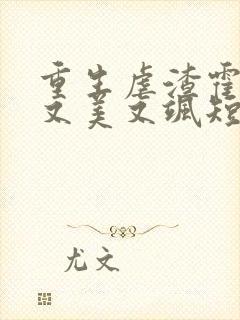 重生虐渣霍
又美又飒短
尤文